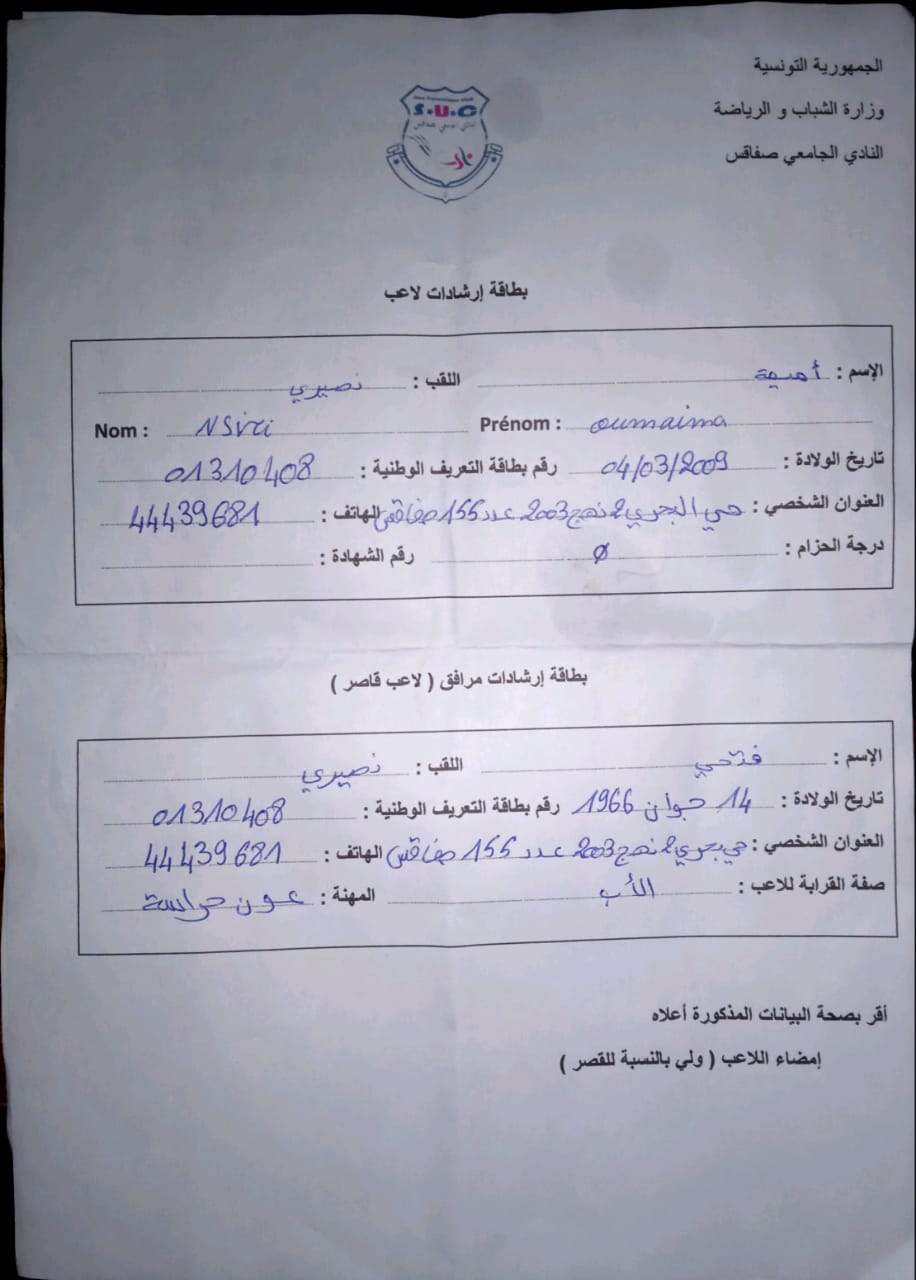 الجمهورية التونسية
وزارة الشباب و الرياضة
النادي الجامعي صفاقس
S.U.C
النادي الجامعي صفاقس
بطاقة إرشادات لاعب
الإسم : أميمة اللقب : نصيري
Nom : NSiri Prénom : oumaima
تاريخ الولادة : 04/03/2009 رقم بطاقة التعريف الوطنية : 01310408
العنوان الشخصي : حي البحري 2 نهج 2003 عدد 155 صفاقس الهاتف : 44439681
درجة الحزام : Ø رقم الشهادة :
بطاقة إرشادات مرافق ( لاعب قاصر )
الإسم : فتحي اللقب : نصيري
تاريخ الولادة : 14 جوان 1966 رقم بطاقة التعريف الوطنية : 01310408
العنوان الشخصي : حي بحري 2 نهج 2003 عدد 155 صفاقس الهاتف : 44439681
صفة القرابة للاعب : الأب المهنة : عون حراسة
أقر بصحة البيانات المذكورة أعلاه
إمضاء اللاعب ( ولي بالنسبة للقصر )